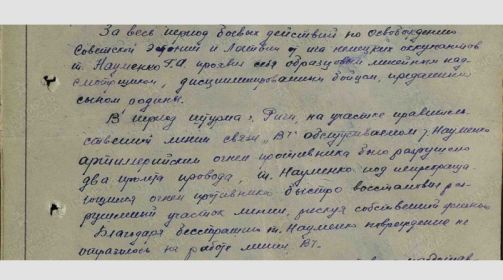 За весь период боевых действий по освобождению
Советской Эстонии и Латвии от немецких оккупантов
т. Науменко Г.А. проявил себя образцовым линейным над
смотрщиком, дисциплинированным бойцом, преданным
сыном родины.
В период штурма г. Риги, на участке правитель
ственной линии связи "ВЧ" обслуживаемом т. Науменко
артиллерийским огнем противника было разрушено
два пролета провода, т. Науменко под непрекраща
ющимся огнем противника быстро восстановил раз
рушенный участок линии, рискуя собственной жизнью
Благодаря бесстрашию т. Науменко повреждение не
отразилось на работе линии ВЧ.